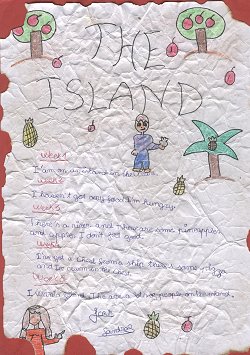 THE
ISLAND
Week 1
I am on an island in the
Week 2
I haven't got any food I'm hungry.
Week 3
There's a river and there are some pineapples
and apples. I don't feel good.
Week 4
I've got a chest from a ship there's some
and I'm
Week 5
I wasn't alone. There are a lot of people on the island.
Sandra